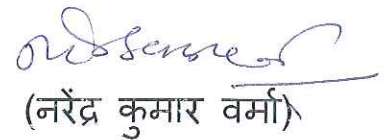 (नरेंद्र कुमार वर्मा)